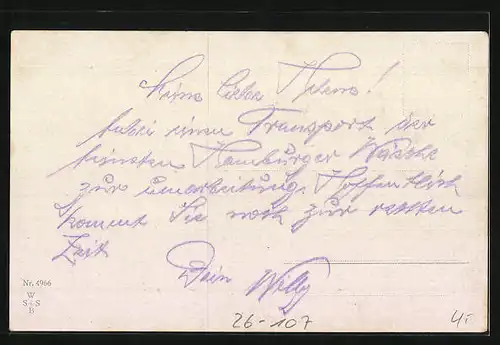 Meine liebe Helene!
anbei einen Transport der
feinsten Hamburger Wäsche
zur umarbeitung. Hoffentlich
kommt Sie noch zur rechten
Zeit
Dein Willy
Nr. 4966
W
S+S
B
26-107
4,-